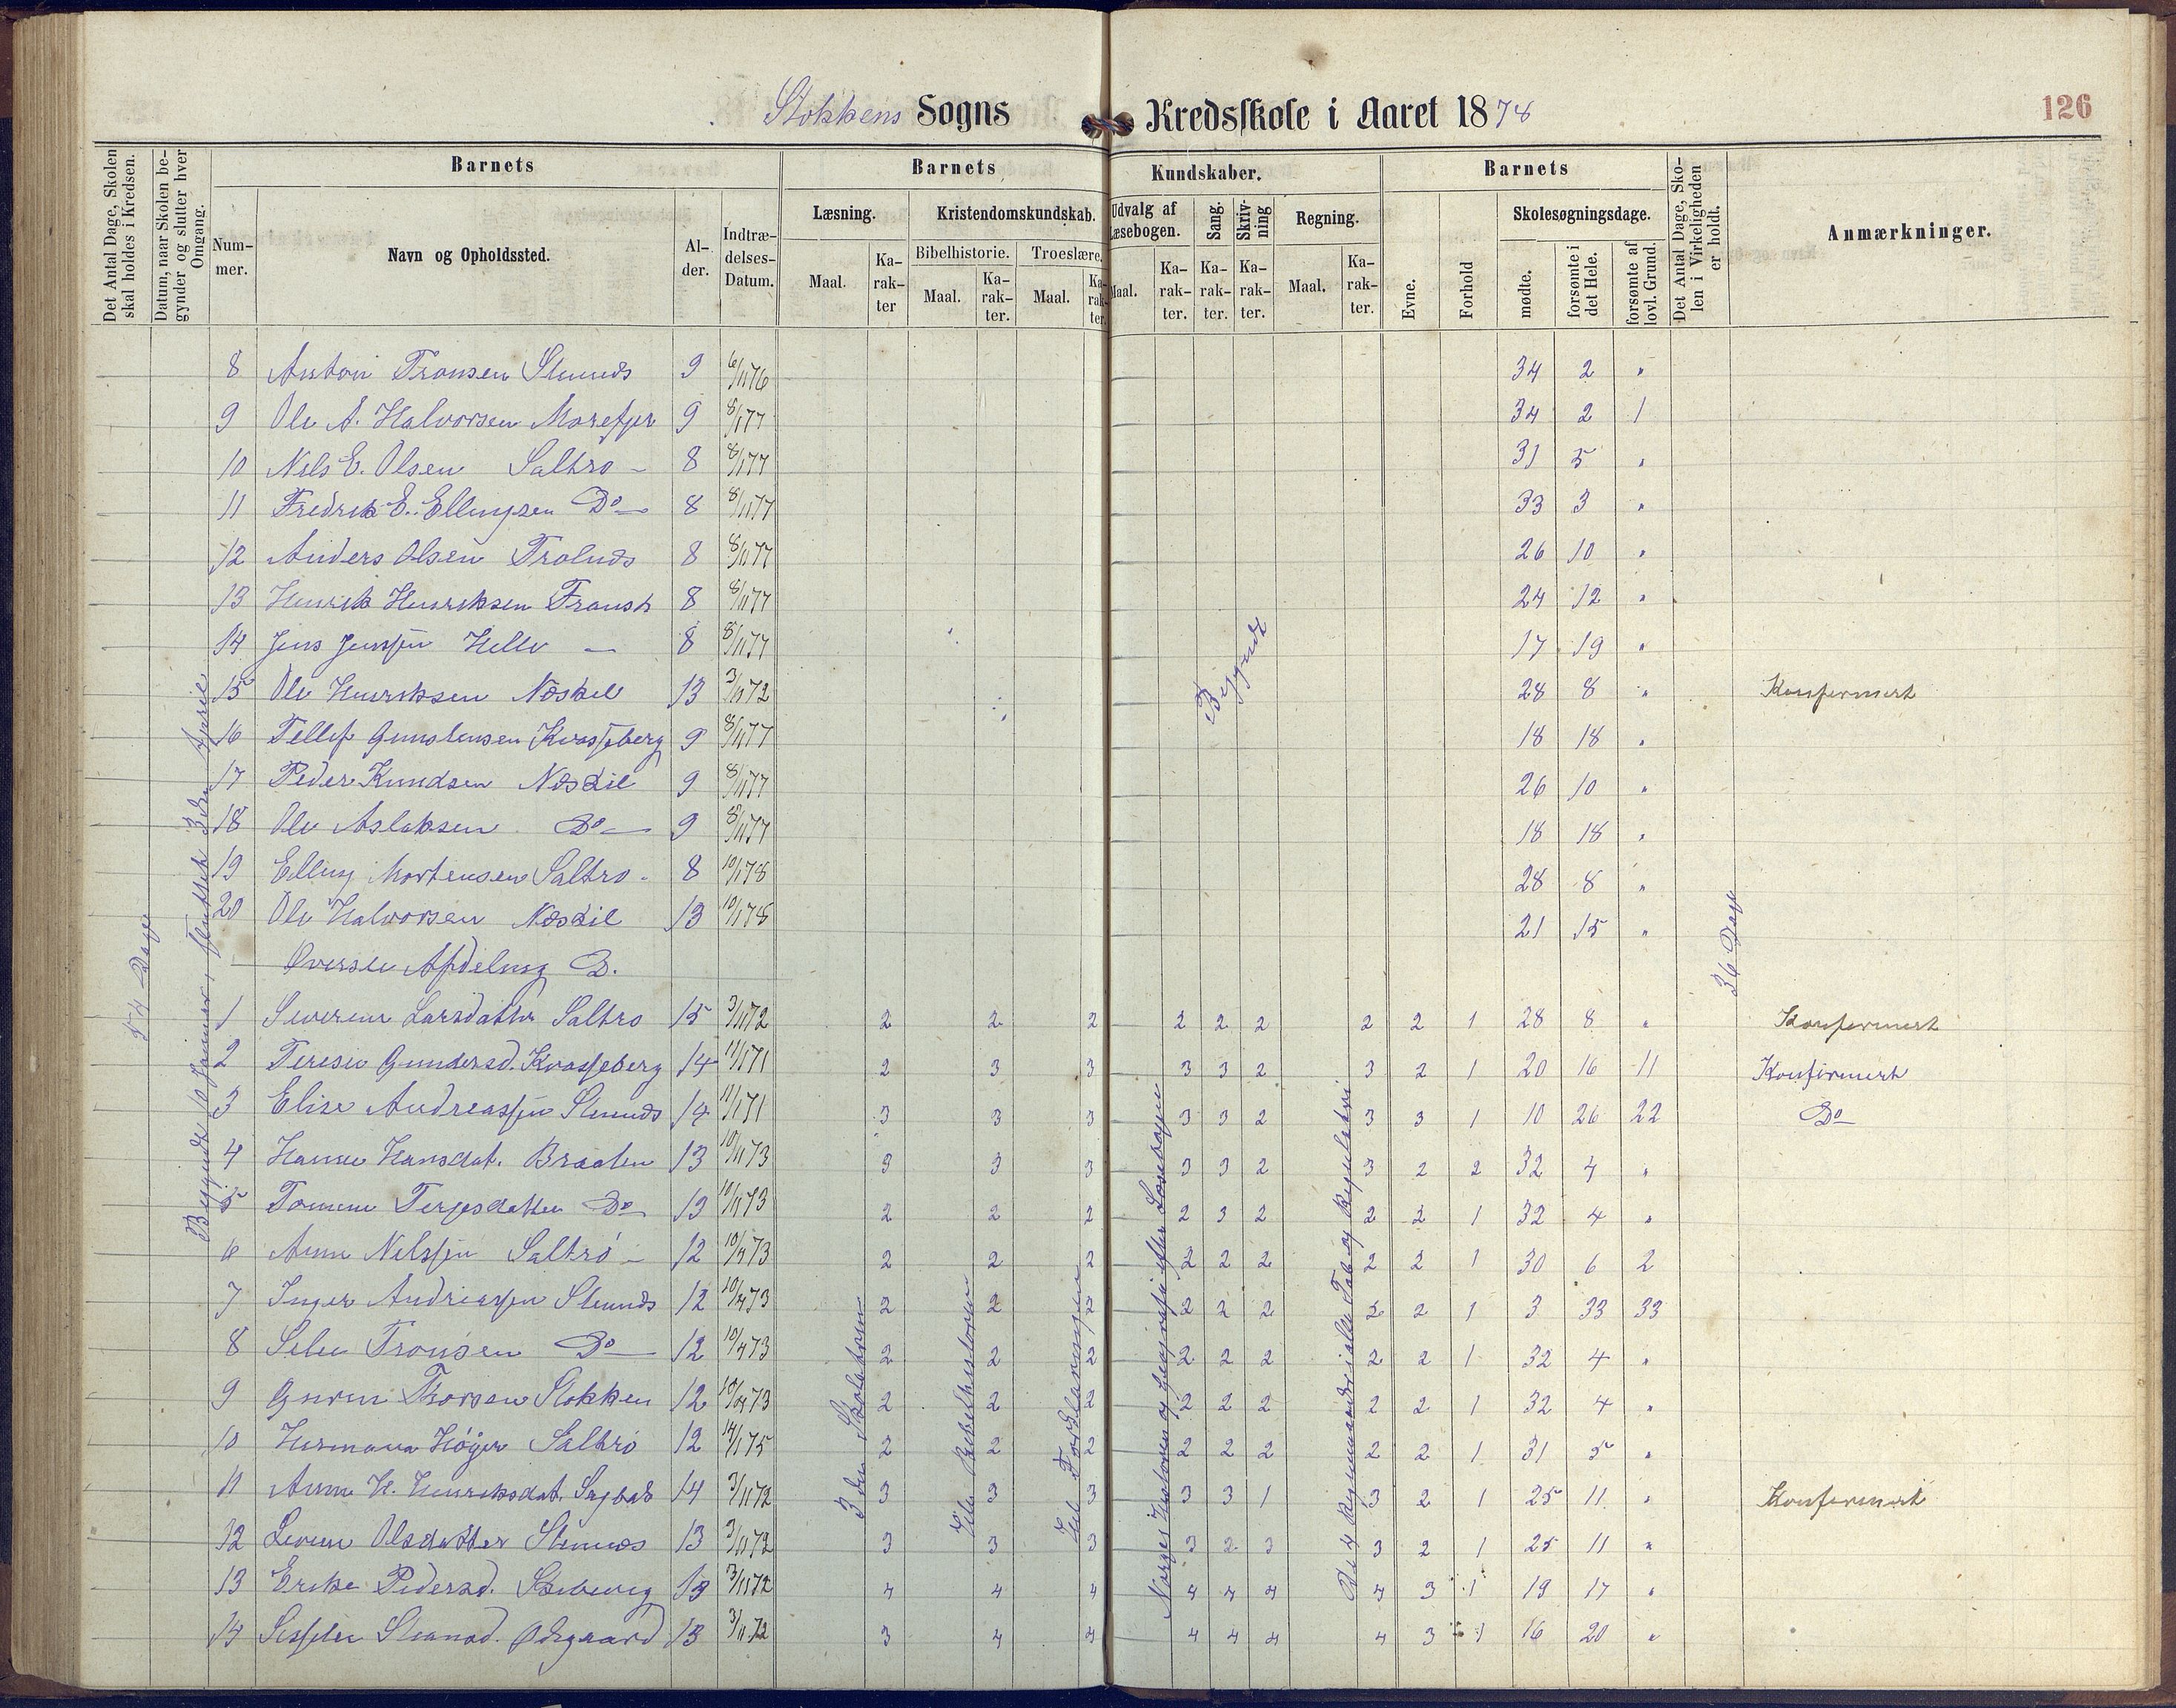 Stokkens Sogns Kredsskole i Aaret 1878 126
Det Antal Dage, Skolen skal holdes i Kredsen.
Datum, naar Skolen begynder og slutter hver Omgang.
Barnets
Nummer.
Navn og Opholdssted.
Alder.
Indtrædelses-Datum.
Barnets Kundskaber.
Læsning.
Maal.
Karakter
Kristendomskundskab.
Bibelhistorie.
Maal.
Karakter.
Troeslære.
Maal.
Karakter.
Udvalg af Læsebogen.
Maal.
Karakter.
Sang.
Karakter.
Skrivning
Karakter.
Regning.
Maal.
Karakter.
Barnets
Evne.
Forhold
Skolesøgningsdage.
mødte.
forsømte i det Hele.
forsømte af lovl. Grund.
Det Antal Dage, Skolen i Virkeligheden er holdt.
Anmærkninger.
54 Dage
Begyndt 10 Januar, sluttet 3die April
Begyndt
36 Dage
8 Anton Tronsen 9 6/11 76 34 2 "
9 Ole A. Halvorsen Morefjer 9 8/1 77 34 2 1
10 Nils E. Olsen Saltro 8 8/1 77 31 5 "
11 Fredrik E. Ellingsen Do 8 8/11 77 33 3 "
12 Anders Olsen 8 8/11 77 26 10 "
13 Henrik Henriksen 8 8/11 77 24 12 "
14 Jens Jenssen Helle 8 8/11 77 17 19 "
15 Ole Henriksen Næskil 13 3/11 72 28 8 " Konfirmert
16 Tellef Gunstensen Kvasseberg 9 8/11 77 18 18 "
17 Peder Knudsen Næskil 9 8/11 77 26 10 "
18 Ole Aslaksen Do 9 8/11 77 18 18 "
19 Elling Mortensen Saltro 8 10/1 78 28 8 "
20 Ole Halvorsen Næskil 13 10/1 78 21 15 "
Øverste Afdeling B.
1 Severine Larsdatter Saltro 15 3/11 72 2 2 2 2 2 2 2 2 1 28 8 " Konfirmert
2 Terese Gundersd. Kvasseberg 14 11/1 71 2 3 3 3 3 2 3 2 1 20 16 11 Konfirmert
3 Elise Andreassen 14 11/1 71 3 3 3 3 3 2 3 3 1 10 26 22 Do
4 Hanne Hansdat. Braaten 13 10/11 73 3 3 3 3 3 2 3 2 2 32 4 "
5 Tomine Terjesdatter Do 13 10/11 73 2 2 2 2 3 2 2 2 1 32 4 "
6 Anne Nilssen Saltrø 12 10/7 73 2 2 2 2 2 2 2 2 1 30 6 2
7 Inger Andreassen 12 10/7 73 2 2 2 2 2 2 2 2 1 3 33 33
8 Tronsen Do 12 10/7 73 2 2 2 2 2 2 2 2 1 32 4 "
9 Thorsen Stokken 12 10/7 73 2 2 2 2 2 2 2 2 1 32 4 "
10 Hermana Høyer Saltrø 12 14/1 75 2 2 2 2 2 2 2 2 1 31 5 "
11 Anne H. Henriksdat. 14 3/11 72 3 3 3 3 3 1 3 2 1 25 11 " Konfirmert
12 Olsdatter 13 3/11 72 3 3 3 3 2 3 3 2 1 25 11 "
13 Pedersd. 13 3/11 72 4 4 4 4 4 4 4 3 1 19 17 "
14 Ødegaard 13 3/11 72 3 4 4 4 4 4 4 3 1 16 20 "
3die Skoletrin
Hele Bibelhistorien
Hele Forklaringen
Norges Historien og Geografi efter Læsebogen
De 4 Regningsarter i hele Tal og Reguladetri